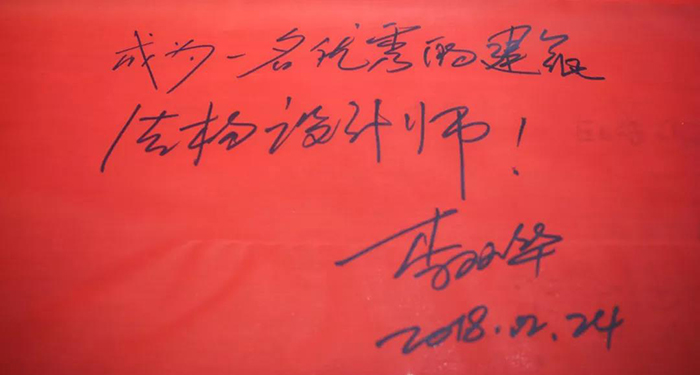 成为一名优秀的建筑
结构设计师！
李双华
2018.02.24